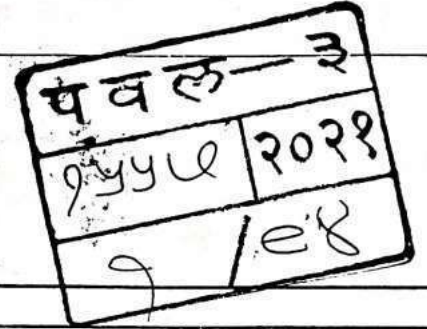 पवल—३
१५५७ २०२१
१ / ९४